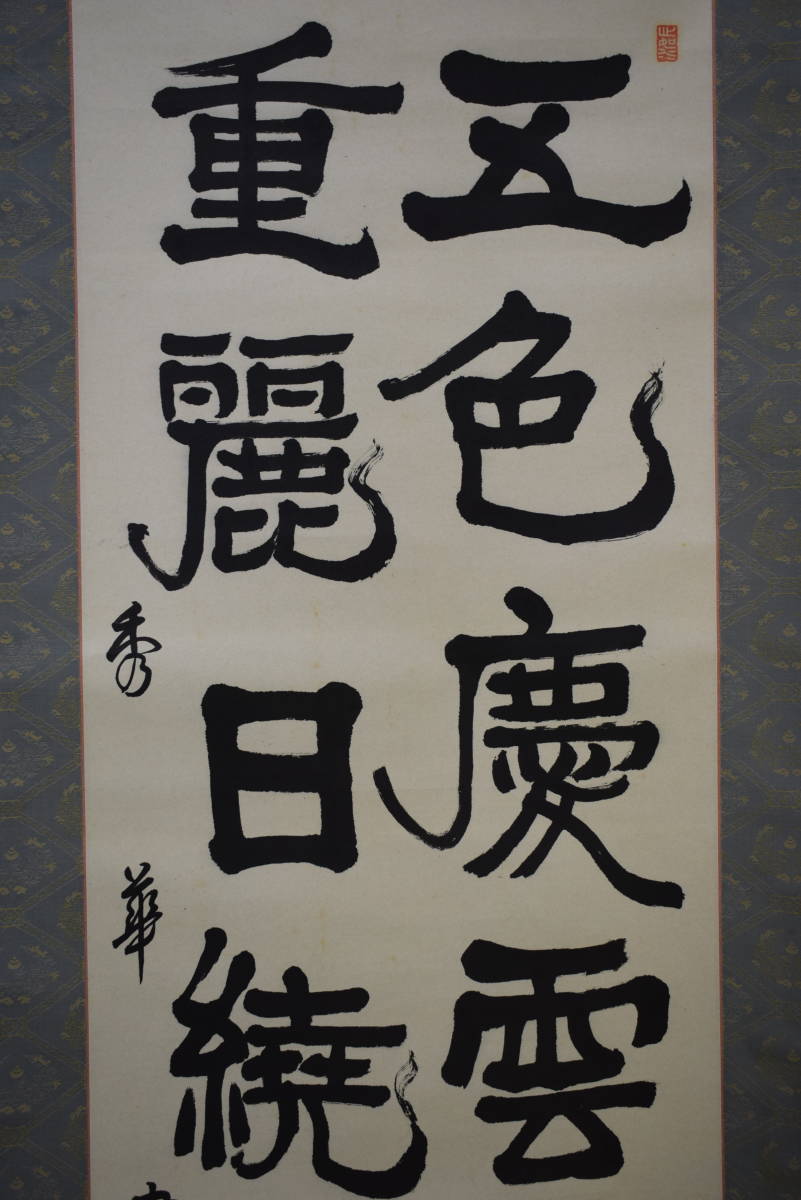 五色慶雲
重麗日繞
秀華